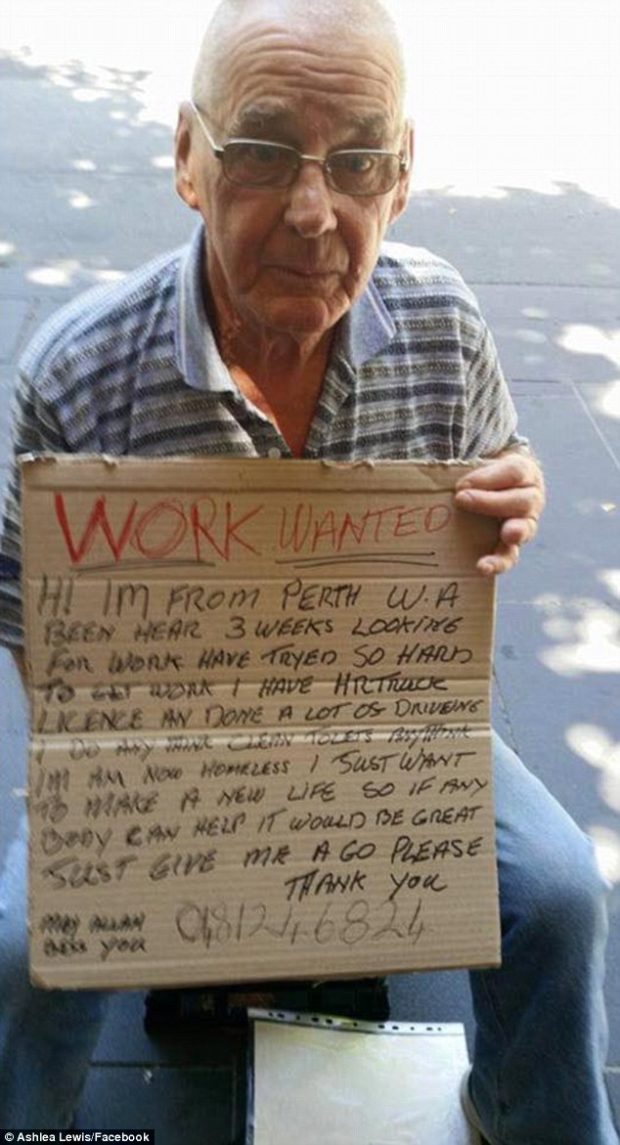 WORK WANTED
HI IM FROM PERTH W.A
BEEN HEAR 3 WEEKS LOOKING
FOR WORK HAVE TRYED SO HARD
TO GET WORK I HAVE HRTRUCK
LICENCE AN DONE A LOT OF DRIVEING
I DO ANY THINK CLEAN TOLETS ANYTHINK
IM AM NOW HOMELESS I JUST WANT
TO MAKE A NEW LIFE SO IF ANY
BODY CAN HELP IT WOULD BE GREAT
JUST GIVE ME A GO PLEASE
THANK YOU
MAY ALLAH
BESS YOU
0481246824
© Ashlea Lewis/Facebook